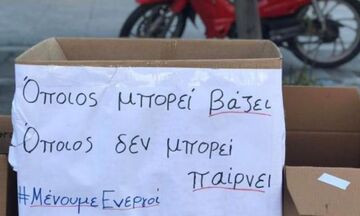 Όποιος μπορεί βάζει
Όποιος δεν μπορεί
παίρνει
#ΜένουμεΕνεργοί